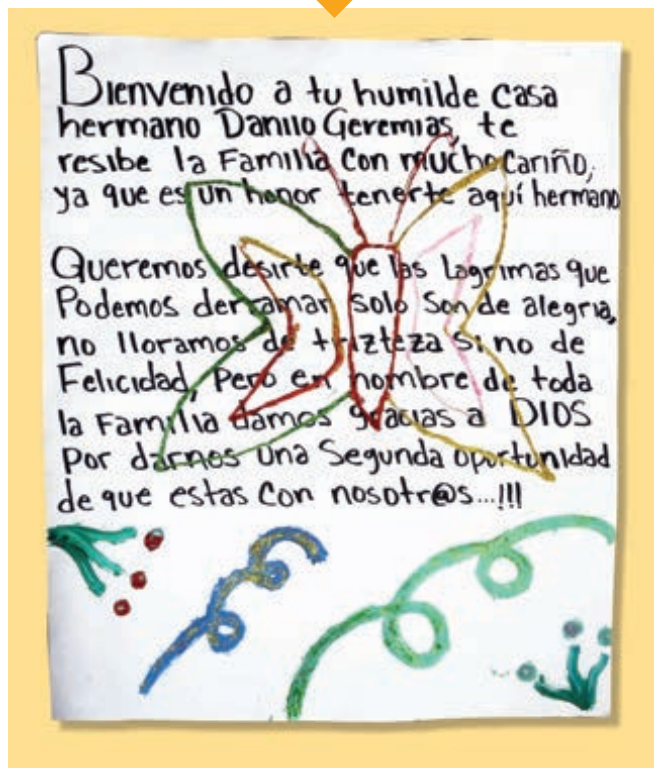 Bienvenido a tu humilde casa
hermano Danilo Geremias, te
resibe la Familia con mucho cariño,
ya que es un honor tenerte aquí hermano
Queremos desirte que las lagrimas que
Podemos derramar solo son de alegria,
no lloramos de trizteza si no de
Felicidad, Pero en nombre de toda
la Familia damos gracias a DIOS
por darnos una Segunda oportunidad
de que estas con nosotr@s...!!!